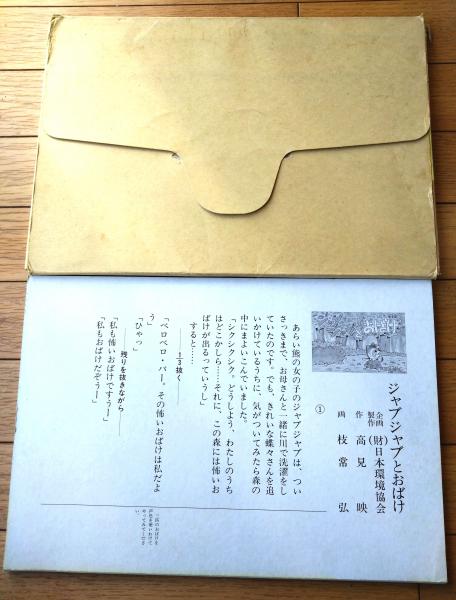 ジャブジャブとおばけ
企画
製作
(財)日本環境協会
作 高見 映
画 枝 常弘
①
あらい熊の女の子のジャブジャブは、つい
さっきまで、お母さんと一緒に川で洗濯をし
ていたのです。でも、きれいな蝶々さんを追
いかけているうちに、気がついてみたら森の
中にまよいこんでいました。
「シクシクシク。どうしよう、わたしのうち
はどこかしら……それに、この森には怖いお
ばけが出るっていうし」
すると……
――1/3抜く――
「ベロベロ・バー。その怖いおばけは私だよ
う」
「ひゃっ」
――残りを抜きながら――
「私も怖いおばけですうー」
「私もおばけだぞうー」